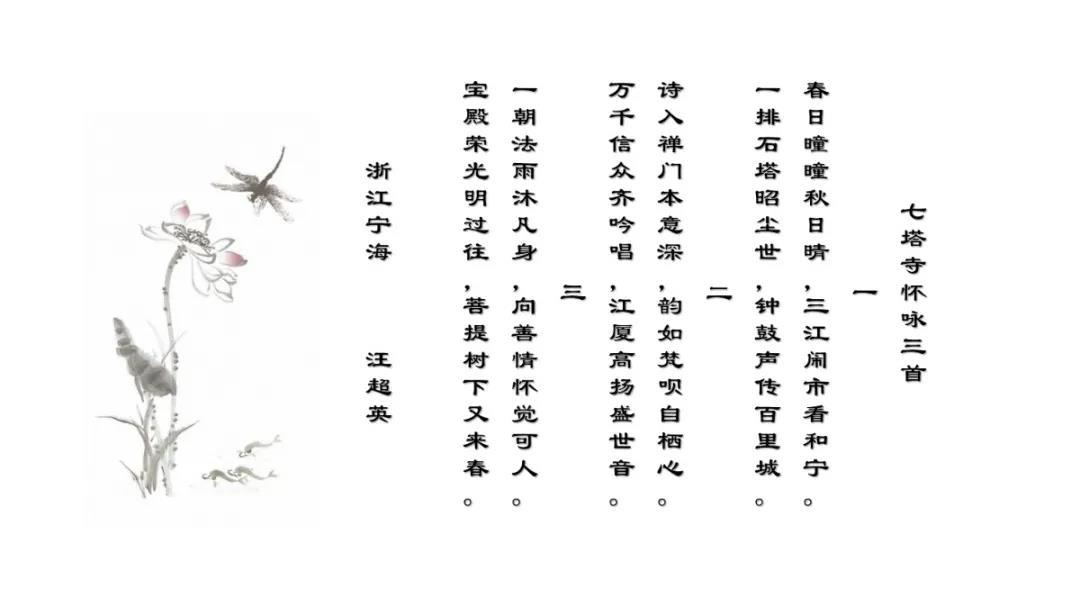 七塔寺怀咏三首
一
春日瞳瞳秋日晴，三江闹市看和宁。
一排石塔昭尘世，钟鼓声传百里城。
二
诗入禅门本意深，韵如梵呗自栖心。
万千信众齐吟唱，江厦高扬盛世音。
三
一朝法雨沐凡身，向善情怀觉可人。
宝殿荣光明过往，菩提树下又来春。
浙江宁海 汪超英